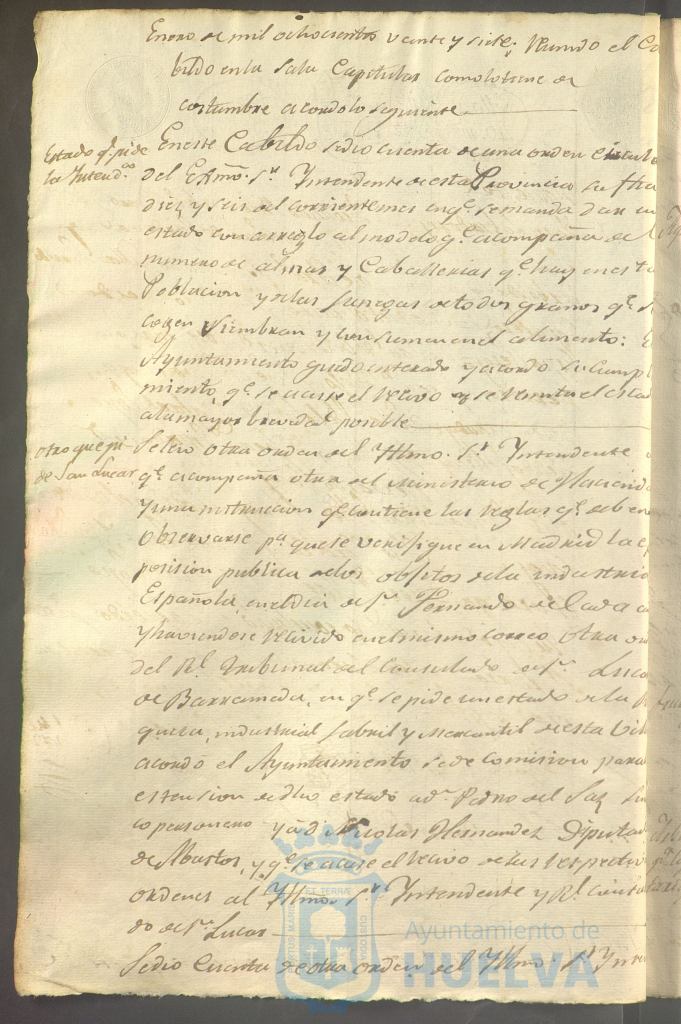 Enero de mil ochocientos veinte y siete; Reunido el Ca
bildo en la Sala Capitular como lo tiene de
costumbre acordo lo seguiente
Estado q.e pide
la Intend.a
En este Cabildo se dio cuenta de una orden
del Exmo. S.r Yntendente de esta Provincia su fha
diez y seis del corriente mes en q.e se manda dar un
estado con arreglo al modelo q.e acompaña de l
numero de almas y Caballerias q.e hay en esta
Poblacion y de las fanegas de todos granos q.e s
cogen siembran y consumen en el alimento: E
Ayuntamiento quedó enterado y acordó su Cumpl
miento, q.e se acuse el recivo y se remita el esta
a la mayor brevedad posible
Otro que pi-
de San Lucar
Se leio otra orden del Yllmo. S.r Yntendente
q.e acompaña otra del Ministerio de Hacienda
y una instrucion q.e contiene las reglas q.e deben
observarse p.a que se verifique en Madrid la e
posision publica de los obgetos de la industria
Española, en el dia de S.n Fernando de Cada a
y haviendose recivido en el mismo correo otra or
del R.l Tribunal del Consulado de S.n Lucar
de Barrameda, en q.e se pide un estado de la Ri
queza, industrial fabril y Mercantil de esta Vill
acordó el Ayuntamiento se de Comision para
estension de dho estado a d.n Pedro del Saz Sin
co personero y a d.n Nicolas Hernandez Diputad
de Abastos, y q.e se acuse el recivo de las respectiv
ordenes al Yllmo. S.r Yntendente y R.l Consula
do de S.n Lucar
Se dio Cuenta de otra orden del Yllmo. S.r Ynten
Ayuntamiento de
HUELVA